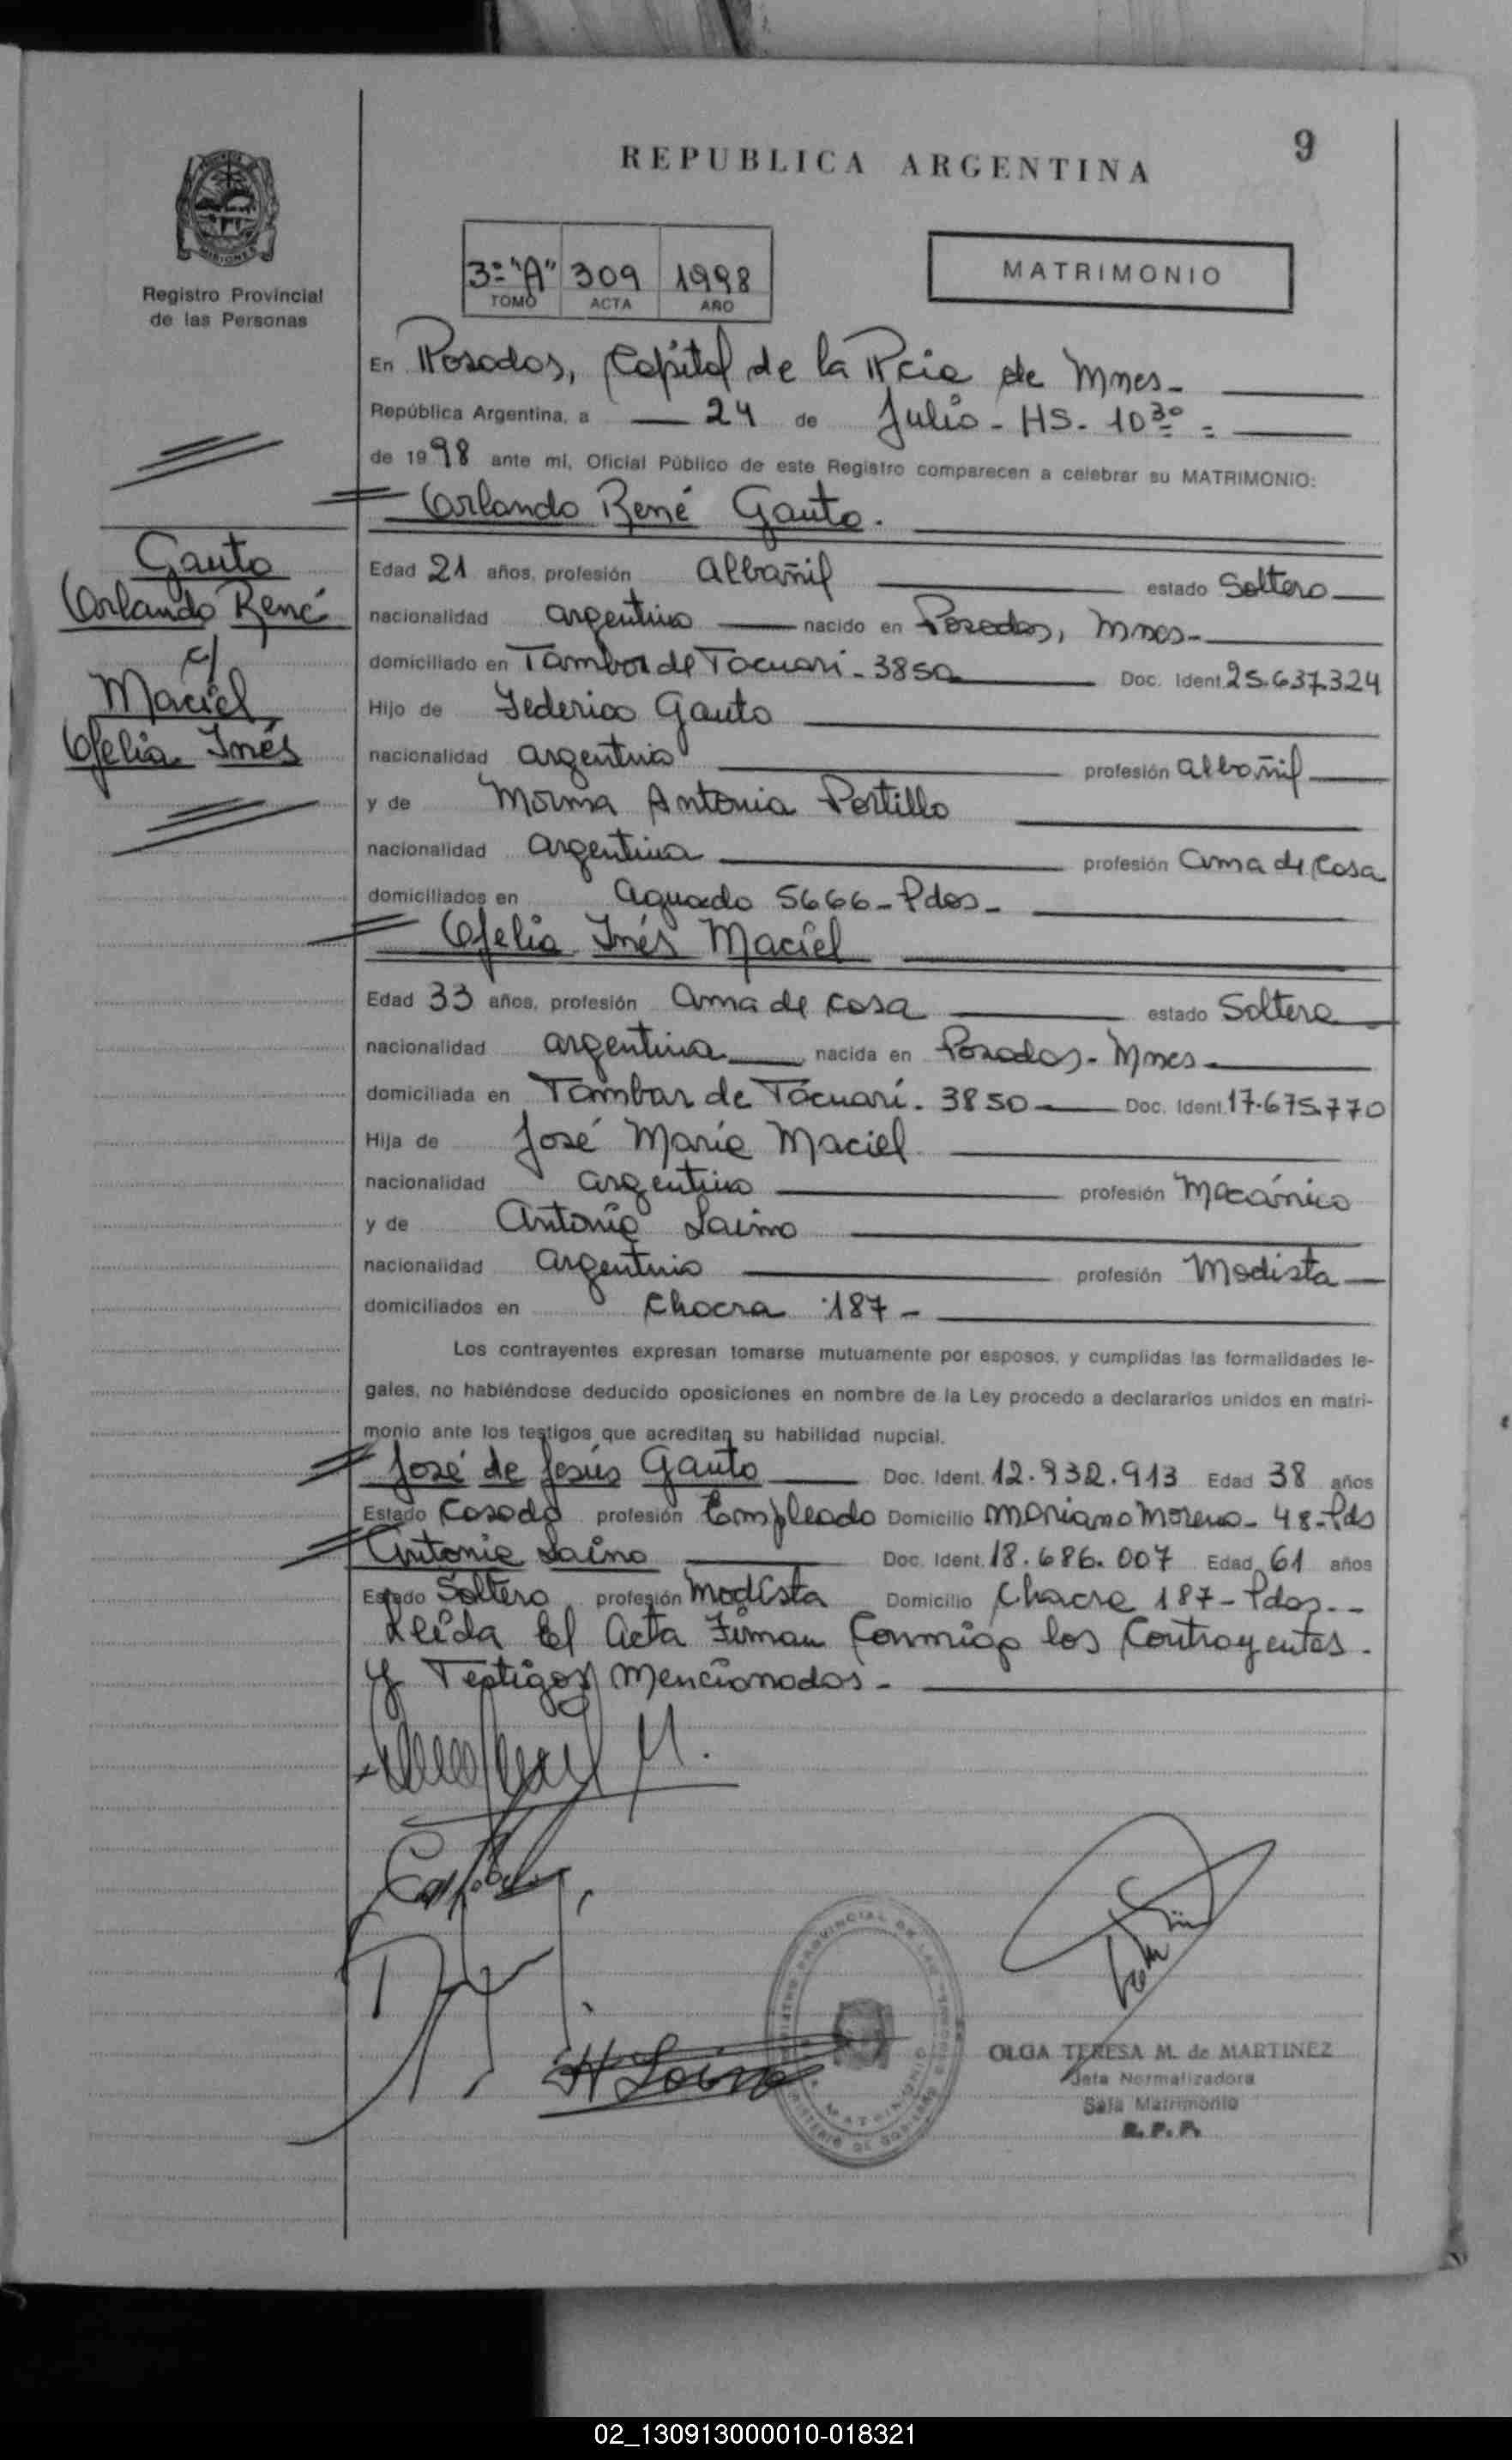 9
REPUBLICA ARGENTINA
MISIONES
Registro Provincial
de las Personas
3º "A" 309 1998
TOMO ACTA AÑO
MATRIMONIO
En Posadas, Capital de la Pcia de Mnes-
República Argentina, a 24 de Julio - HS. 10 30 =
de 1998 ante mí, Oficial Público de este Registro comparecen a celebrar su MATRIMONIO:
Orlando René Gauto.
Gauto
Orlando René
c/
Maciel
Ofelia Inés
Edad 21 años, profesión albañil estado Soltero
nacionalidad argentino nacido en Posadas, Mnes-
domiciliado en Tambor de Tacuarí - 3850 Doc. Ident. 25.637.324
Hijo de Federico Gauto
nacionalidad argentino profesión albañil
y de Norma Antonia Portillo
nacionalidad argentina profesión ama de casa
domiciliados en Aguado 5666 - Pdas -
Ofelia Inés Maciel
Edad 33 años, profesión ama de casa estado Soltera
nacionalidad argentina nacida en Posadas - Mnes
domiciliada en Tambor de Tacuarí - 3850 Doc. Ident. 17.675.770
Hija de José María Maciel
nacionalidad argentino profesión Mecánico
y de Antonia Laino
nacionalidad argentina profesión Modista
domiciliados en Chacra 187 -
Los contrayentes expresan tomarse mutuamente por esposos, y cumplidas las formalidades le-
gales, no habiéndose deducido oposiciones en nombre de la Ley procedo a declararlos unidos en matri-
monio ante los testigos que acreditan su habilidad nupcial.
José de Jesús Gauto Doc. Ident. 12.932.913 Edad 38 años
Estado Casado profesión Empleado Domicilio Mariano Moreno - 48 - Pds
Antonia Laino Doc. Ident. 18.686.007 Edad 61 años
Estado Soltero profesión Modista Domicilio Chacra 187 - Pdas. -
Leída el Acta Firman Conmigo los Contrayentes -
y Testigos Mencionados -
A Laino
OLGA TERESA M. de MARTINEZ
Jefa Normalizadora
Sala Matrimonio
R. P. P.
02_130913000010-018321